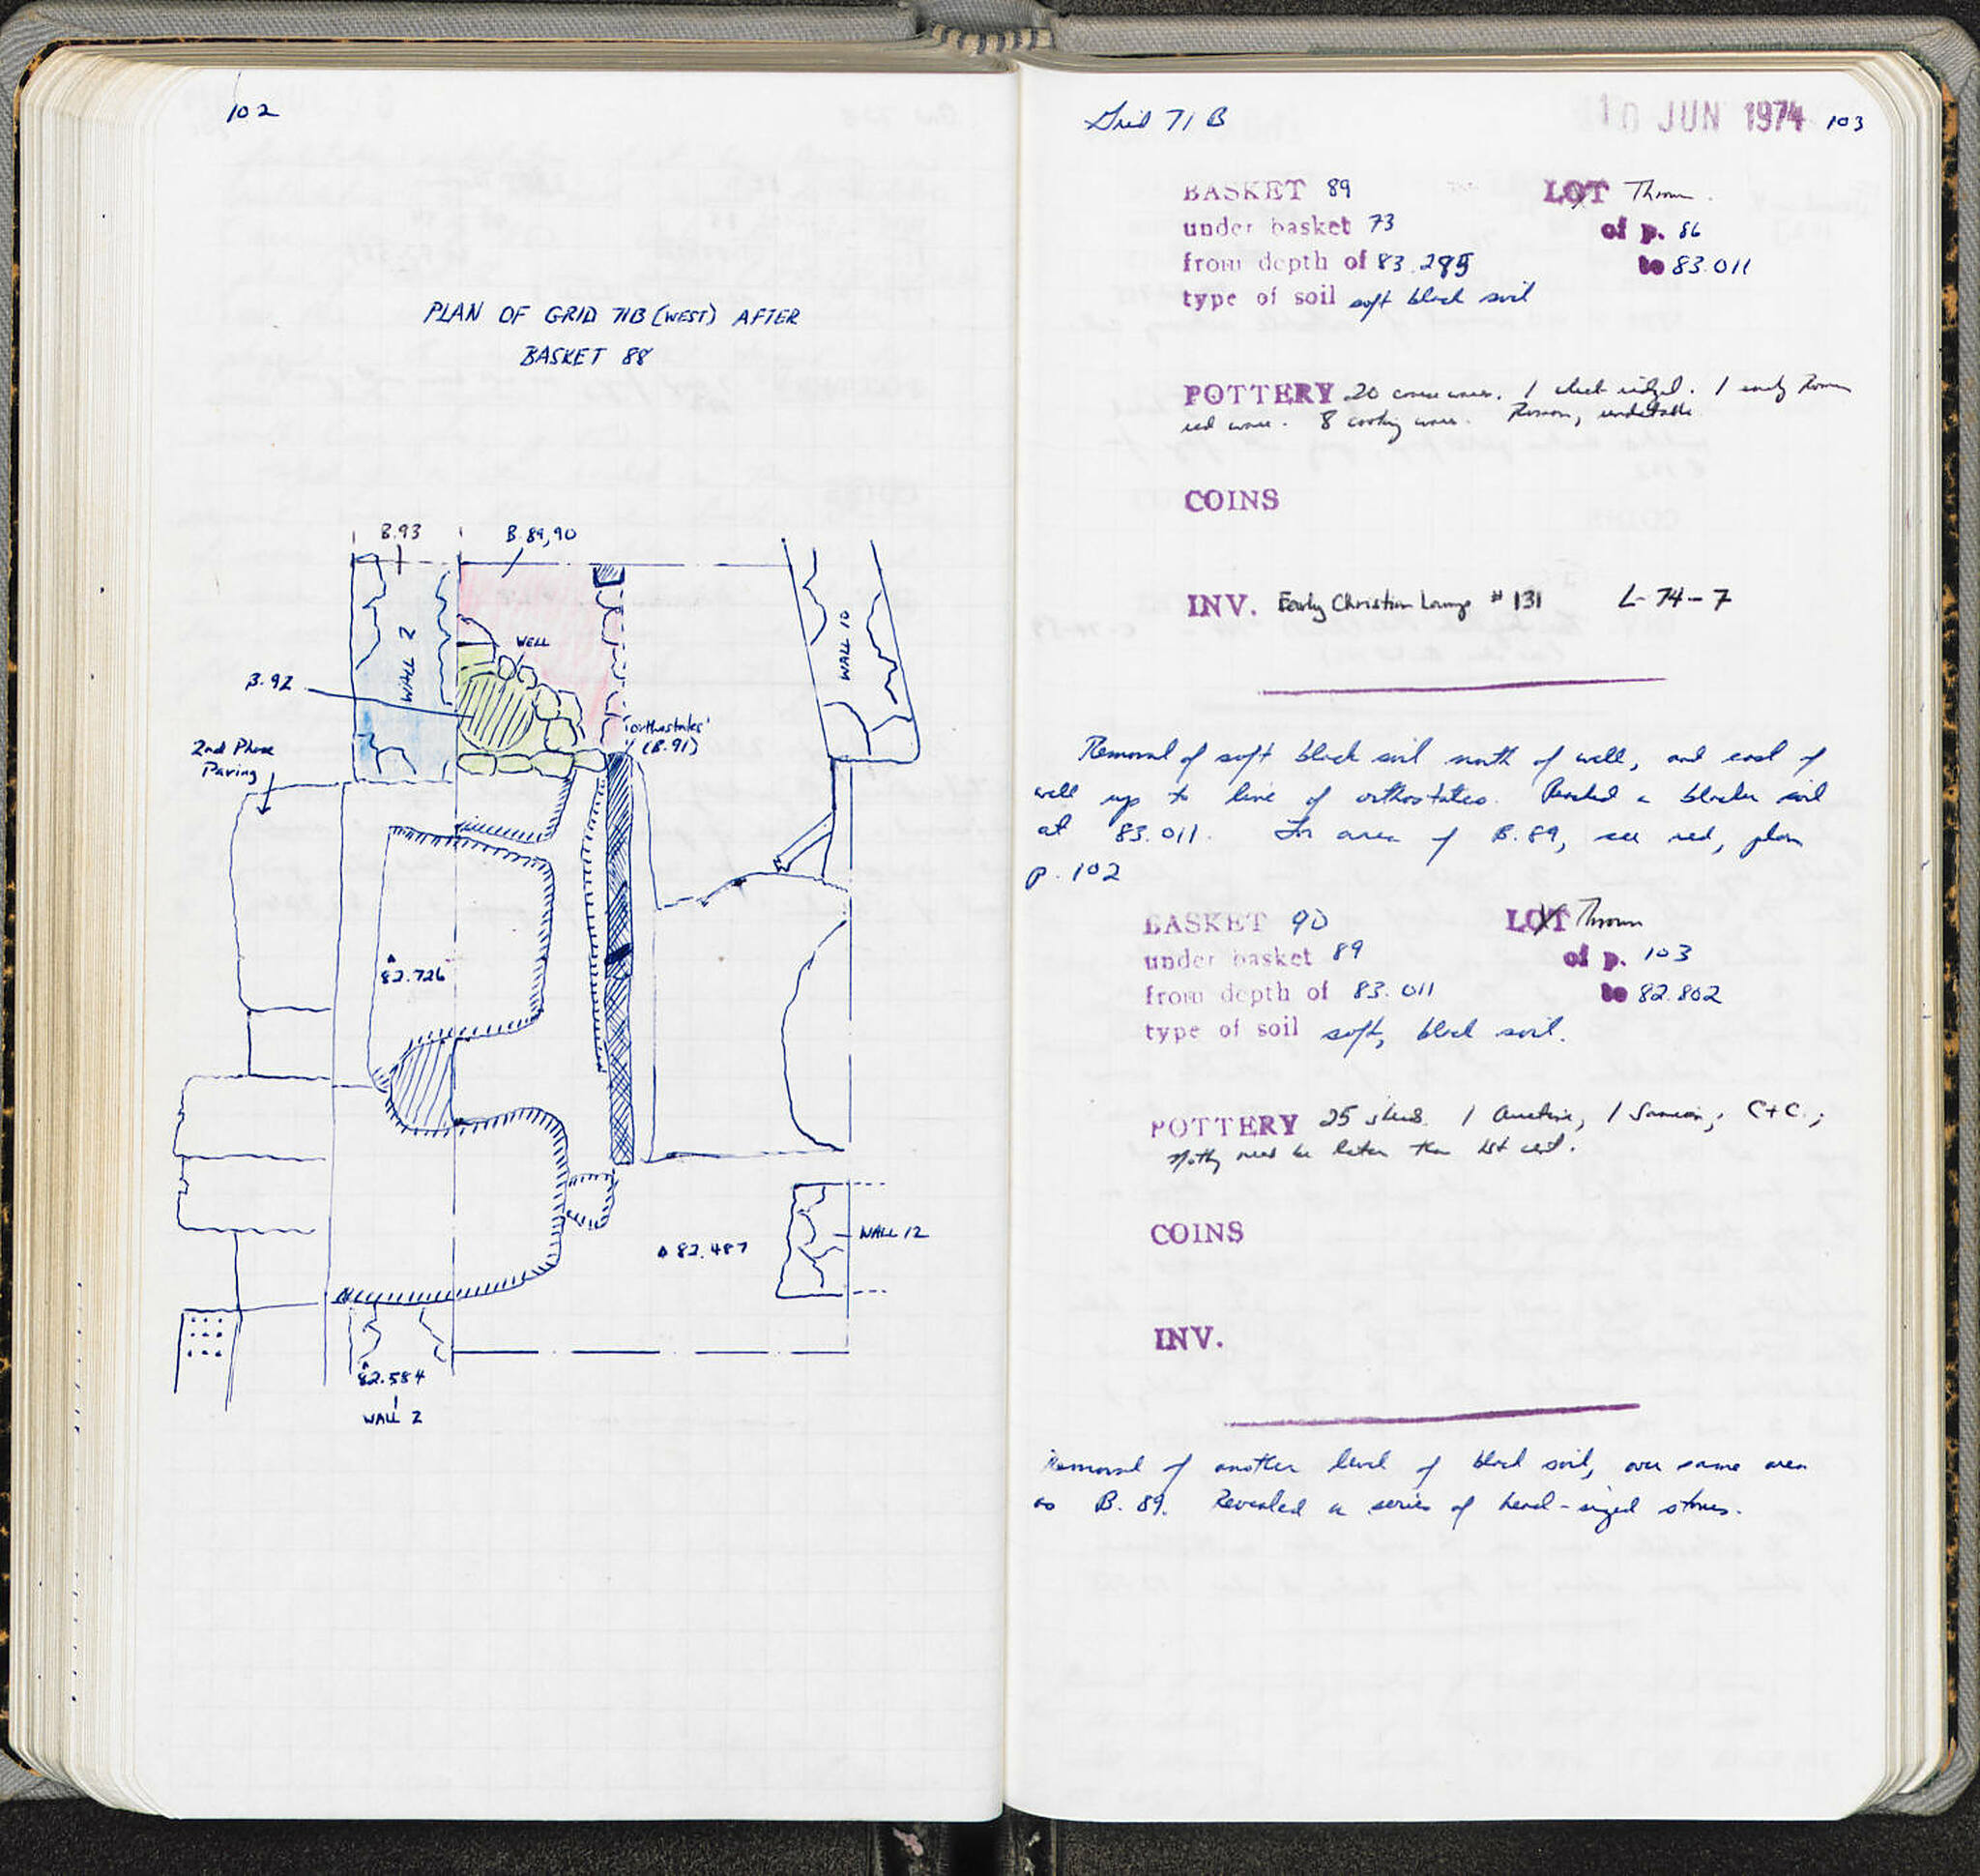 102
PLAN OF GRID 71B (WEST) AFTER
BASKET 88
B.93
B.89,90
WALL 2
WELL
WALL 10
B.92
'orthostates'
(B.91)
2nd Phase
Paving
82.726
WALL 12
82.487
82.584
WALL 2
Grid 71 B
10 JUN 1974
103
BASKET 89
LOT Thrown.
under basket 73
of p. 86
from depth of 83.285
to 83.011
type of soil soft black soil
POTTERY 20 coarse ware. 1 wheel ridged. 1 early Roman
red ware. 8 cooking ware. Roman, undatable
COINS
INV. Early Christian Lamp #131 L-74-7
Removal of soft black soil north of well, and east of
well up to line of orthostates. Reached a blacker soil
at 83.011. For area of B.89, see red, plan
p. 102
BASKET 90
LOT Thrown
under basket 89
of p. 103
from depth of 83.011
to 82.802
type of soil soft, black soil.
POTTERY 25 sherds. 1 Arretine, 1 Samian; C+C.;
Nothg need be later than 1st cent.
COINS
INV.
Removal of another level of black soil, over same area
as B. 89. Revealed a series of head-sized stones.